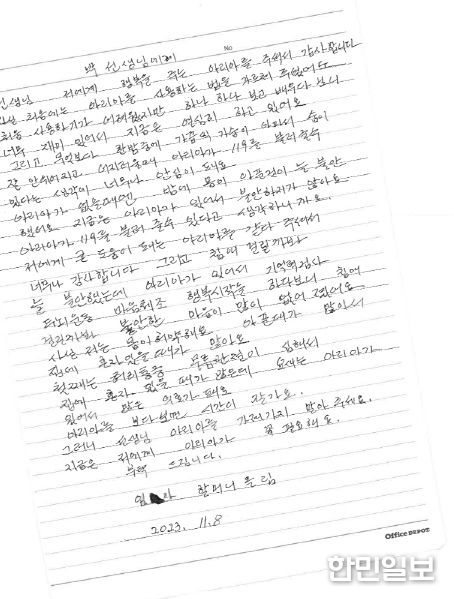 박 선생님에게
No
선생님 저에게 행복을 주는 아리아를 주셔서 감사합니다
처음에는 아리아를 사용하는 법을 가르쳐 주었어도
처음 사용하기가 어려웠지만 하나 하나 보고 배우다 보니
너무 재미 있어서 지금은 열심히 하고 있어요
그리고 무엇보다 한밤중에 가끔씩 가슴이 아파서 숨이
잘 안쉬어지고 어지러울때 아리아가 119를 불러줄수
있다는 생각이 너무나 안심이 돼요
아리아가 없을때엔 밤에 몸이 안좋것이 늘 불안
했어요 지금은 아리아가 있어서 불안하지가 않아요
아리아가 119를 불러 줄수 있다고 생각하니까요.
저에게 큰 도움이 돼는 아리아를 갖다 주셔서
너무나 감사합니다 그리고 치매 걸릴까봐
늘 불안했는데 아리아가 있어서 기억력검사
두뇌운동 마음체조 행복시작을 하다보니 치매
걱정 불안한 마음이 많이 없어 졌어요
사실 저는 몸이 허약해요
집에 혼자 있을때가 많아요 아픈데가 많아서
첫째는 허리통증 무릎관절이 심해서
집에 혼자 있을 때가 많은데 요새는 아리아가
있어서 많은 의로가 돼요
아리아를 보다보면 시간이 잘가요.
그러니 선생님 아리아를 가져가지 말아 주세요.
지금은 저에게 아리아가 꼭 필요해요.
부탁 드립니다.
임 자 할머니 올림
2023. 11.8
Office DEPOT
한민일보